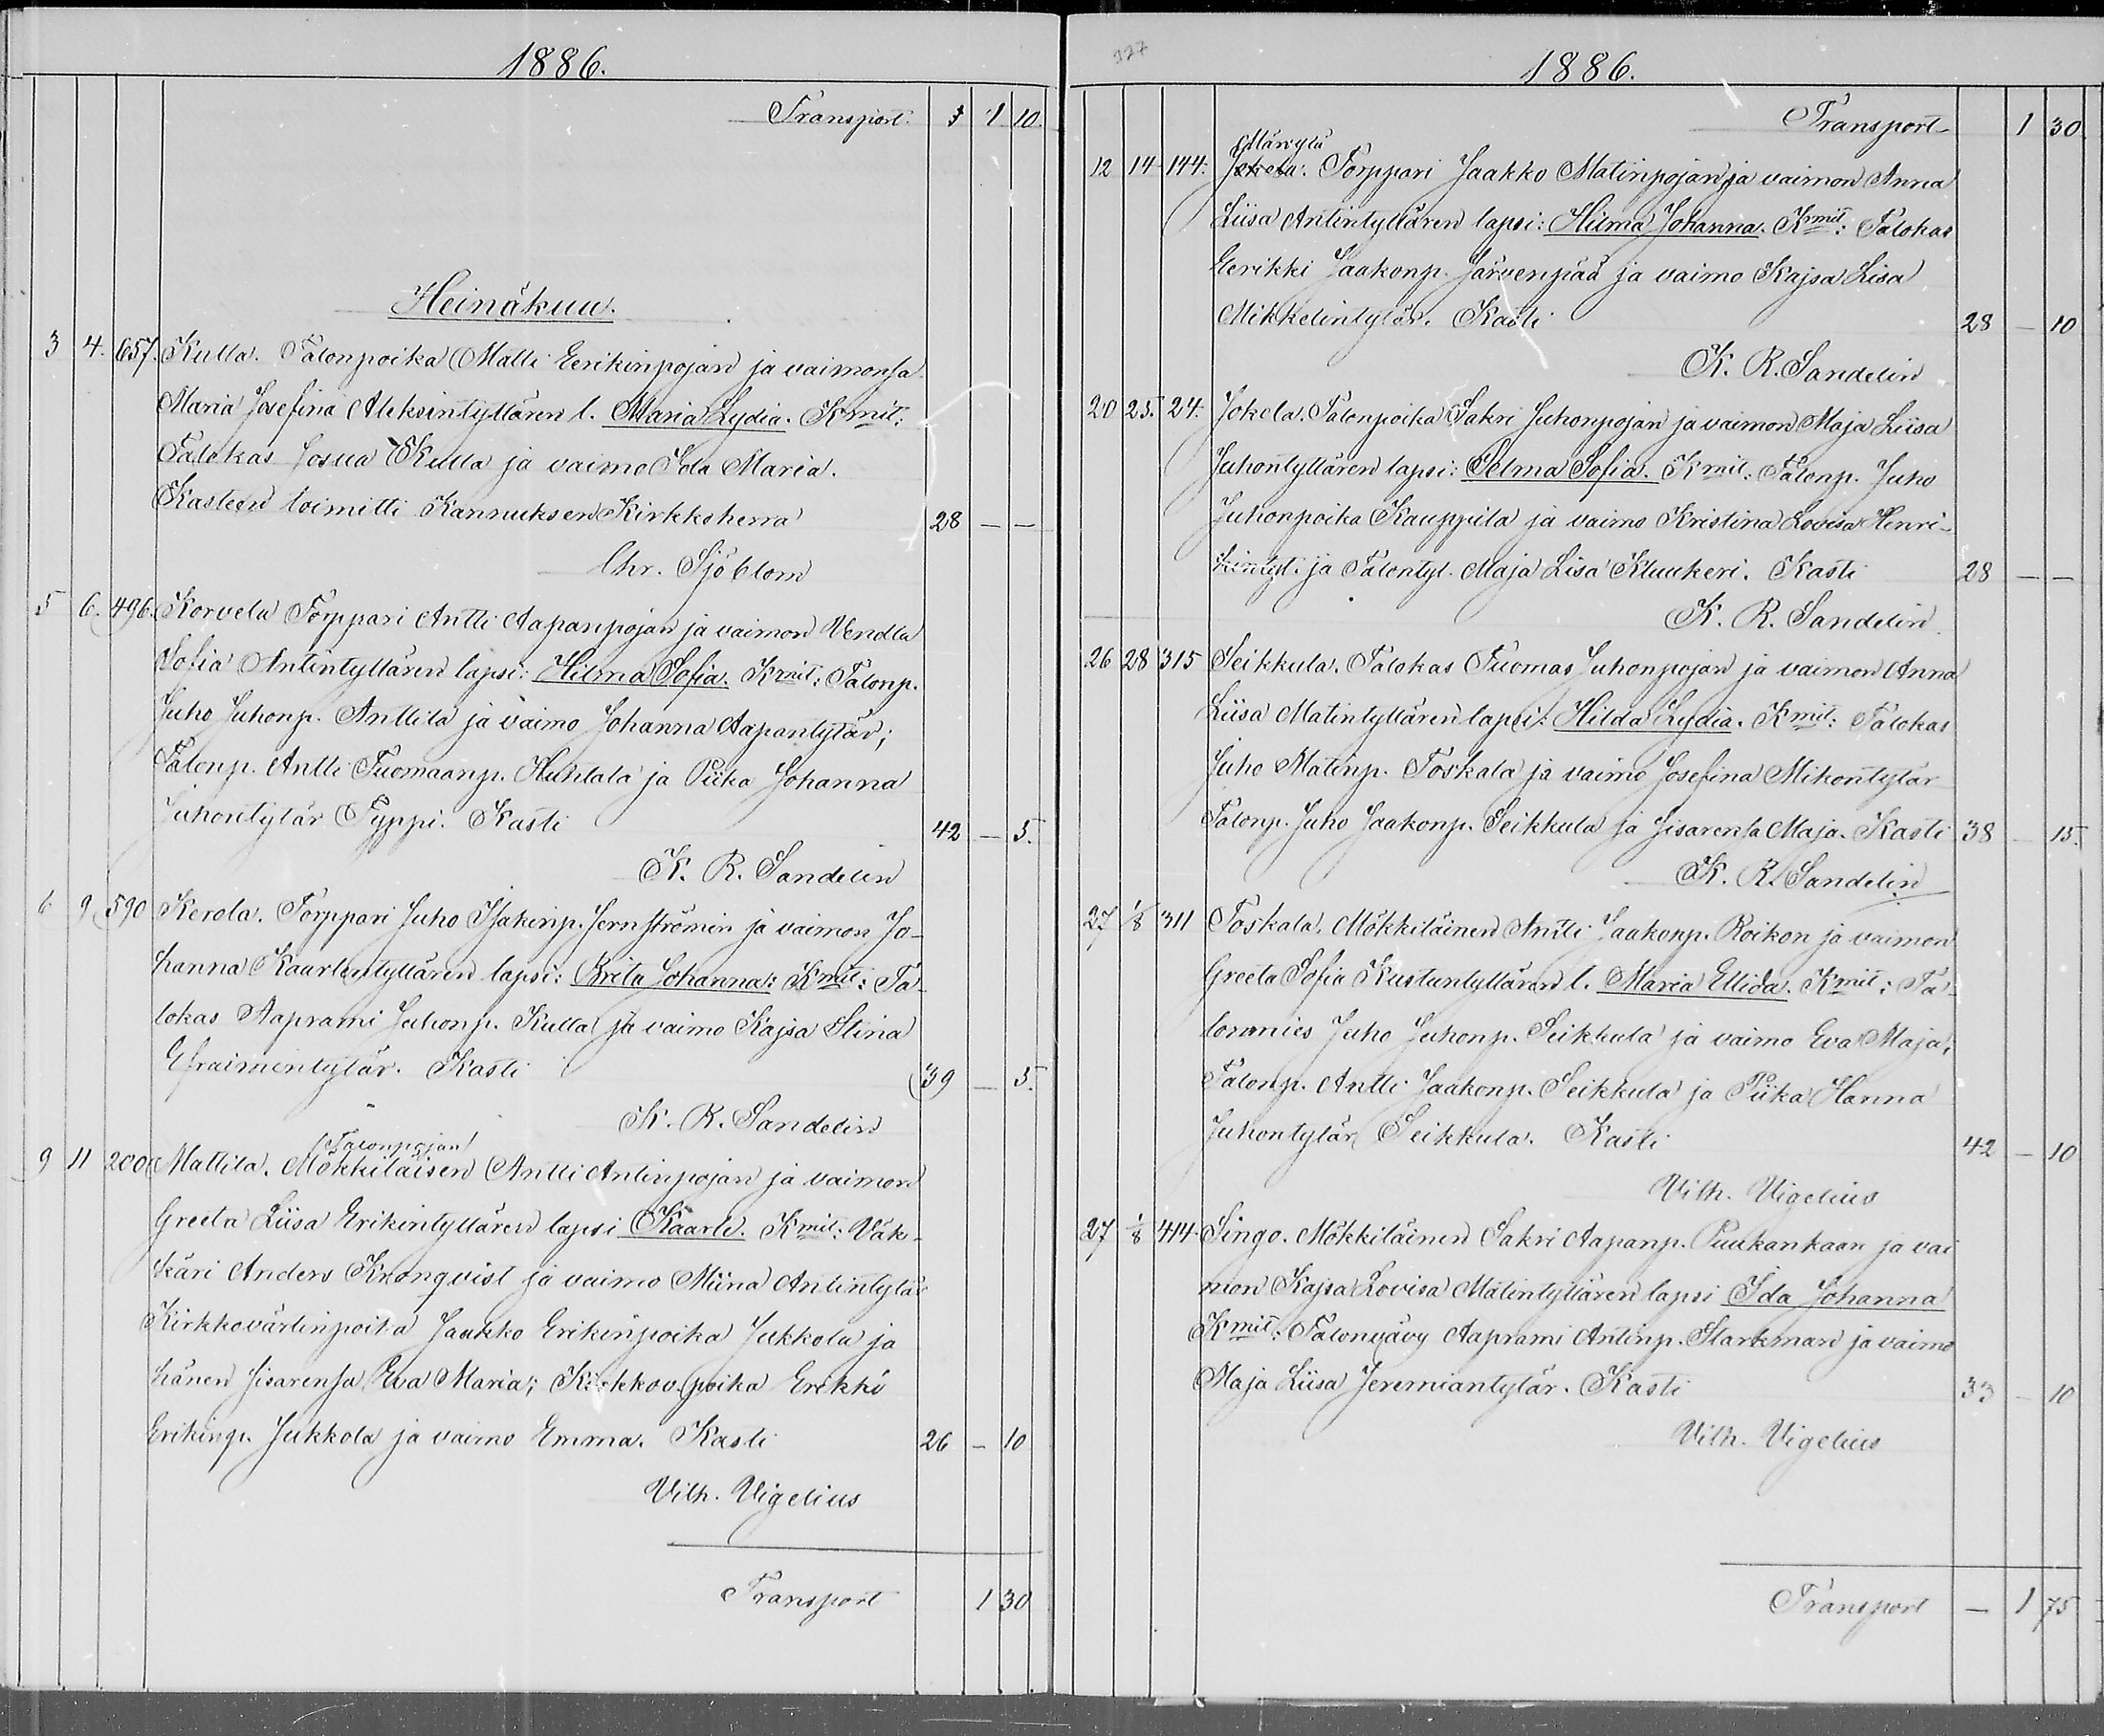 1886.
Transport. 1 10.
Heinäkuu.
3 4. 657. Kulla. Talonpoika Matti Eerikinpojan ja vaimonsa
Maria Josefina Aleksintyttären l. Maria Lydia. Kmit:
Talokas Josua Kulla ja vaimo Ida Maria.
Kasteen toimitti Kannuksen Kirkkoherra 28 — —
Chr. Sjöblom
5 6. 496. Korvela Torppari Antti Aapanpojan ja vaimon Vendla
Sofia Antintyttären lapsi: Hilma Sofia. Kmit: Talonp.
Juho Juhonp. Anttila ja vaimo Johanna Aapantytär;
Talonp. Antti Tuomaanp. Huhtala ja Piika Johanna
Juhontytär Typpi. Kasti 42 — 5.
K. R. Sandelin
6 9 590 Kerola. Torppari Juho Isakinp. Jernströmin ja vaimon Jo-
hanna Kaarlentyttären lapsi: Brita Johanna: Kmit: Ta-
lokas Aaprami Juhonp. Kulla ja vaimo Kajsa Stina
Efraimintytär. Kasti 39 — 5.
K. R. Sandelin
Talonpojan
9 11 200 Mattila. Mökkiläisen Antti Antinpojan ja vaimon
Greeta Liisa Erikintyttären lapsi Kaarle. Kmit: Väk-
käri Anders Kronqvist ja vaimo Miina Antintytär
Kirkkovärtinpoika Jaakko Erikinpoika Jukkola ja
hänen sisarensa Eva Maria; Kirkkov. poika Erikki
Erikinp. Jukkola ja vaimo Emma. Kasti 26 — 10
Vilh. Vigelius
Transport 1 30
327
1886.
Transport 1 30
Märsylä
12 14 144. Jokela. Torppari Jaakko Matinpojan ja vaimon Anna
Liisa Antintyttären lapsi: Hilma Johanna. Kmit: Talokas
Eerikki Jaakonp. Järvenpää ja vaimo Kajsa Lisa
Mikkelintytär. Kasti 28 — 10
K. R. Sandelin
20 25. 24. Jokela. Talonpoika Sakri Juhonpojan ja vaimon Maja Liisa
Juhontyttären lapsi: Selma Sofia. Kmit: Talonp. Juho
Juhonpoika Kauppila ja vaimo Kristina Lovisa Henri-
kintyt. ja Talontyt. Maja Lisa Kluukeri. Kasti 28 — —
K. R. Sandelin
26 28 315 Seikkula. Talokas Tuomas Juhonpojan ja vaimon Anna
Liisa Matintyttären lapsi: Hilda Lydia. Kmit: Talokas
Juho Matinp. Toskala ja vaimo Josefina Mikontytär
Talonp. Juho Jaakonp. Seikkula ja sisarensa Maja. Kasti 38 — 15.
K. R. Sandelin
27 1/8 311 Toskala. Mökkiläinen Antti Jaakonp. Roikon ja vaimon
Greeta Sofia Kustuntyttären l. Maria Ellida. Kmit: Ta-
lonmies Juho Juhonp. Seikkula ja vaimo Eva Maja;
Talonp. Antti Jaakonp. Seikkula ja Piika Hanna
Juhontytär Seikkula. Kasti 42 — 10
Vilh. Vigelius
27 1/8 414. Singo. Mökkiläinen Sakri Aapanp. Puukankaan ja vai
mon Kajsa Lovisa Matintyttären lapsi Ida Johanna
Kmit: Talonvävy Aaprami Antinp. Starkman ja vaimo
Maja Liisa Jeremiantytär. Kasti 33 — 10
Vilh. Vigelius
Transport — 1 75